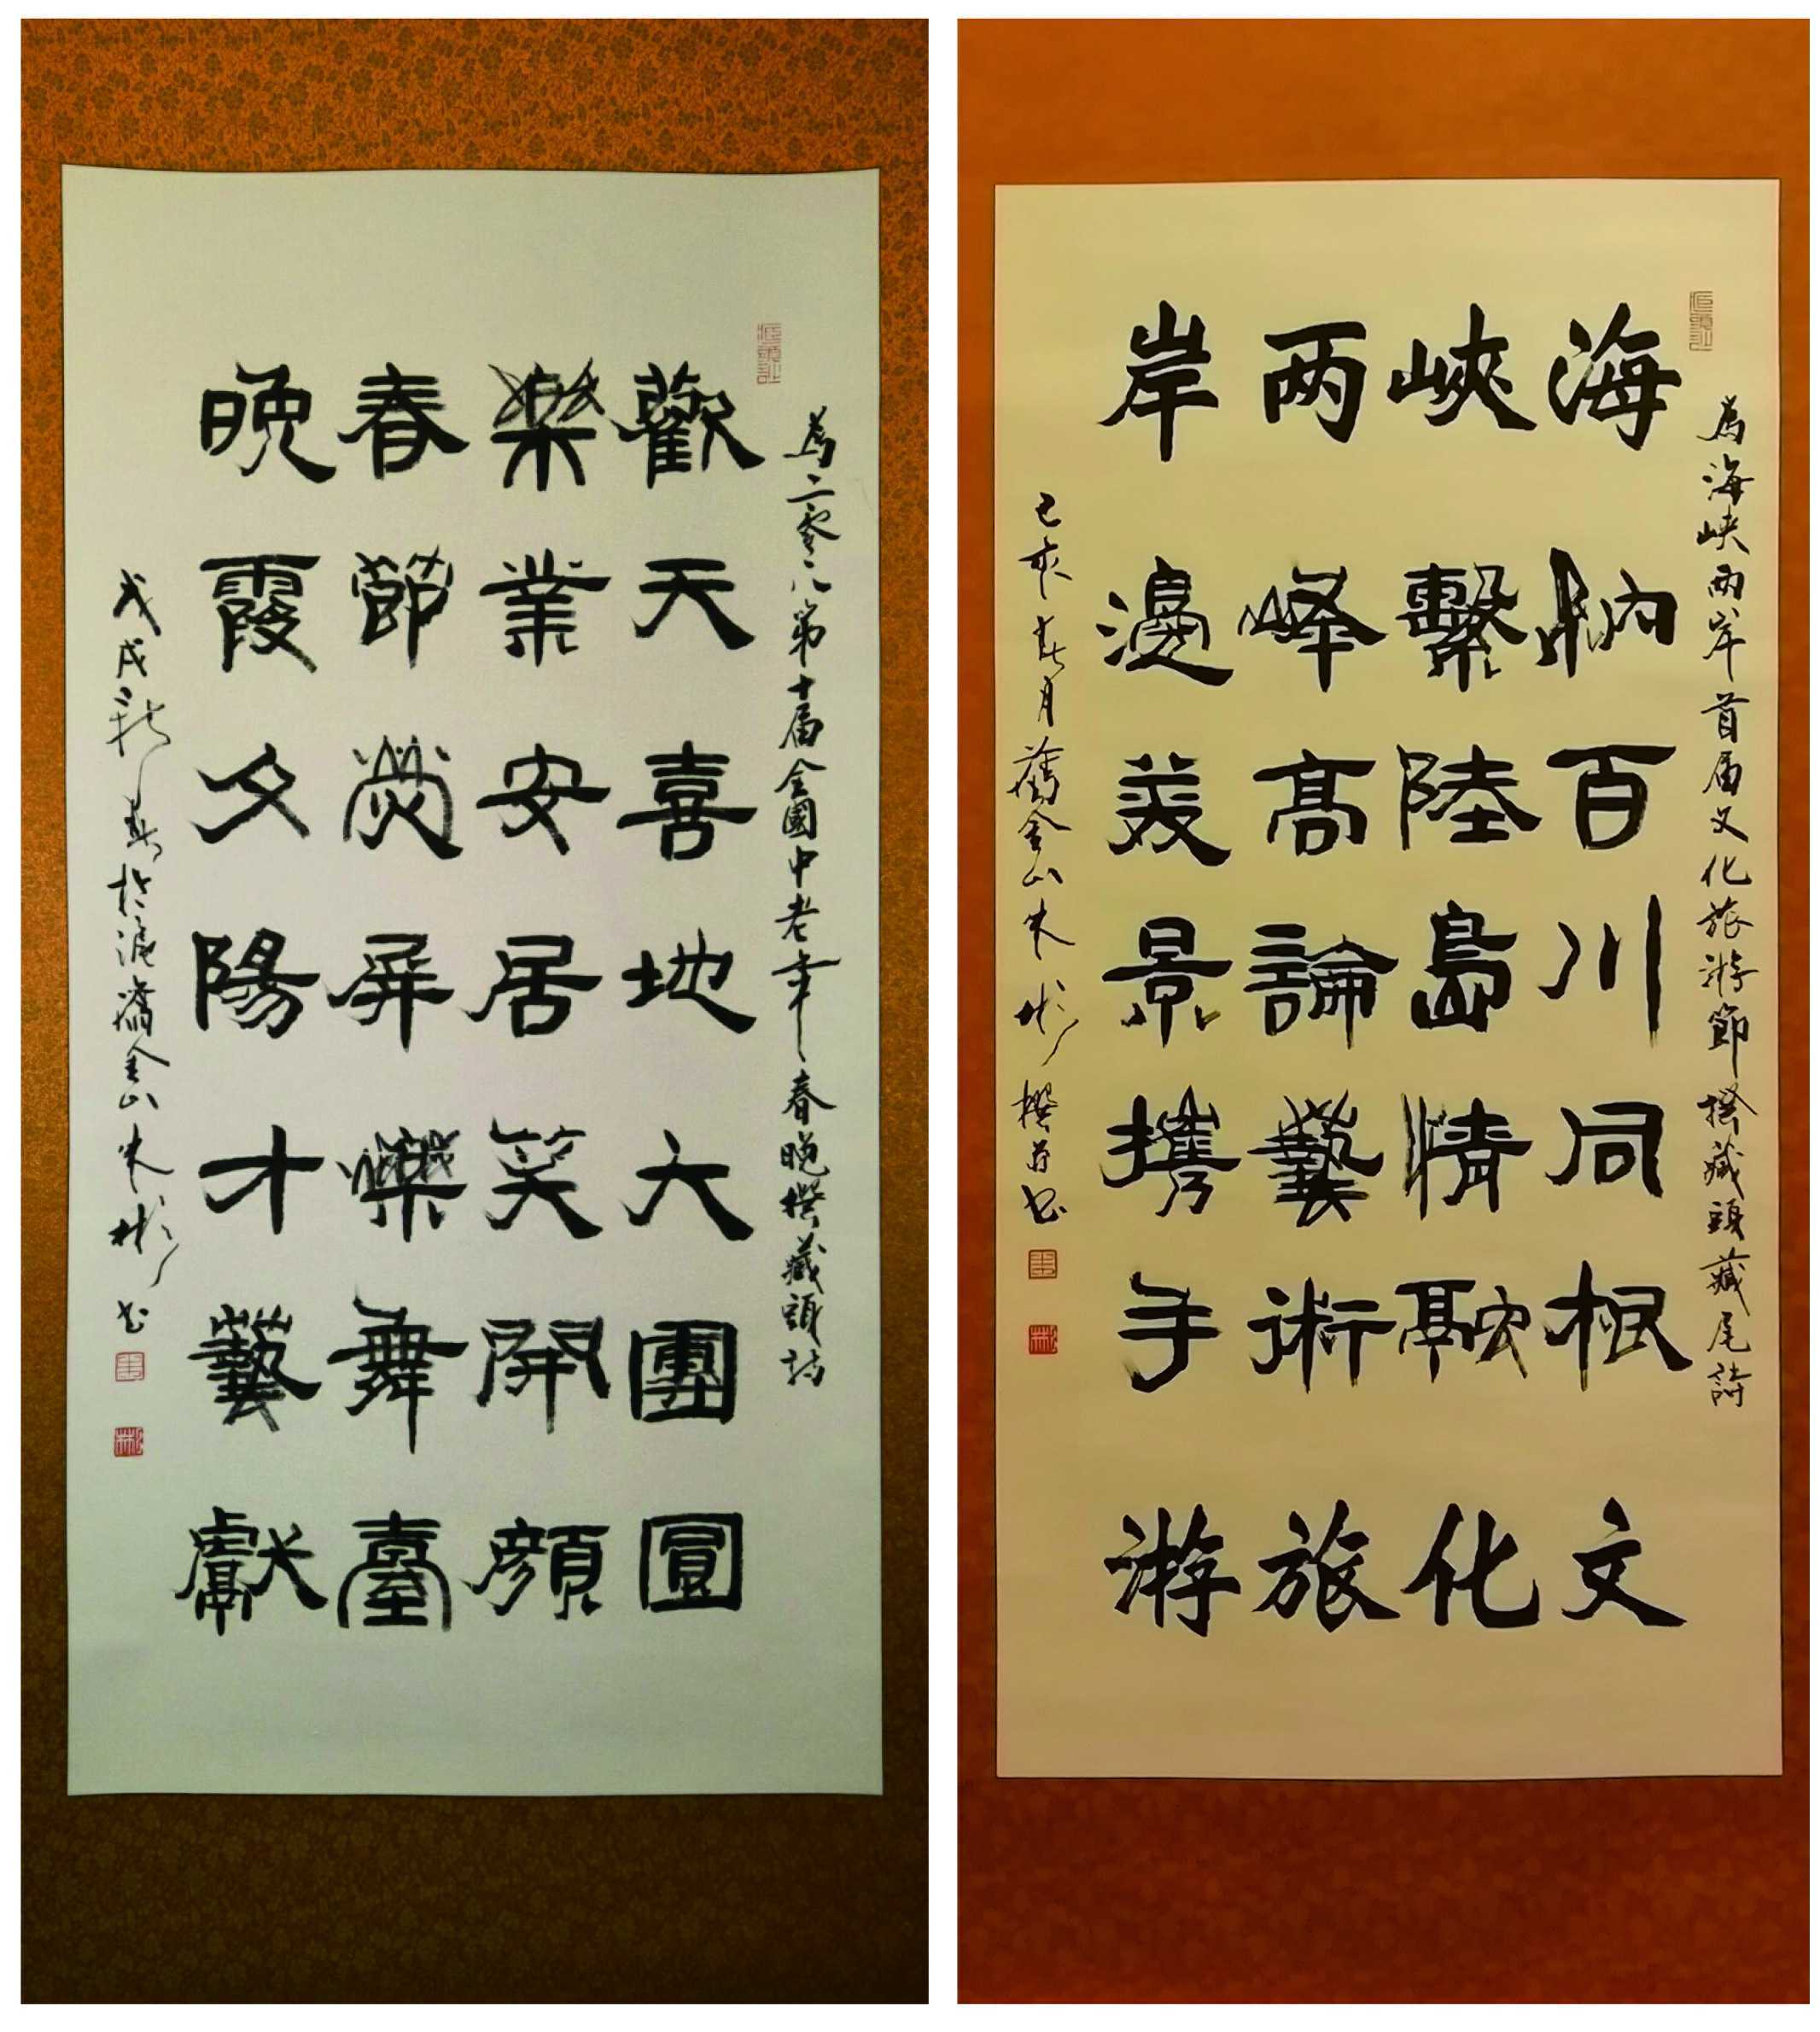 為二零一八第十届全國中老年春晚撰藏頭詩
歡天喜地大團圓
樂業安居笑開顔
春節熒屏爍舞臺
晚霞夕陽才藝獻
戊戌新春於滬濱金山朱彬书
為海峽兩岸首届文化旅游節撰藏頭藏尾詩
海納百川同根文
峽繫陸島情融化
两峰高論藝術旅
岸邊美景攜手游
己亥春月舊金山朱彬撰并书